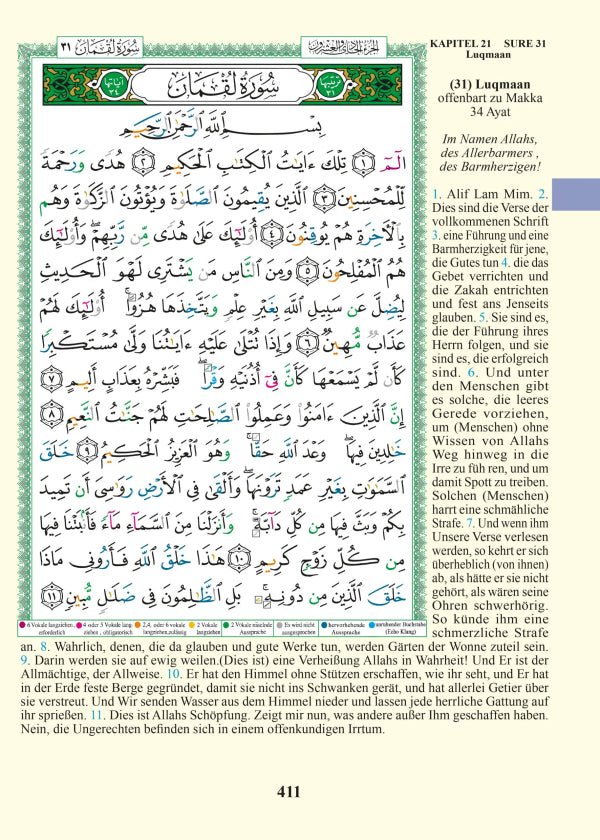 سورة لقمان ٣١
الجزء الحادي والعشرون
KAPITEL 21 SURE 31
Luqmaan
آياتها ٣٤
سُورَةُ لُقْمَان
ترتيبها ٣١
بِسْمِ ٱللَّهِ ٱلرَّحْمَٰنِ ٱلرَّحِيمِ
الٓمٓ ١ تِلْكَ ءَايَٰتُ ٱلْكِتَٰبِ ٱلْحَكِيمِ ٢ هُدًى وَرَحْمَةً
لِّلْمُحْسِنِينَ ٣ ٱلَّذِينَ يُقِيمُونَ ٱلصَّلَوٰةَ وَيُؤْتُونَ ٱلزَّكَوٰةَ وَهُم
بِٱلْءَاخِرَةِ هُمْ يُوقِنُونَ ٤ أُو۟لَٰٓئِكَ عَلَىٰ هُدًى مِّن رَّبِّهِمْ ۖ وَأُو۟لَٰٓئِكَ
هُمُ ٱلْمُفْلِحُونَ ٥ وَمِنَ ٱلنَّاسِ مَن يَشْتَرِى لَهْوَ ٱلْحَدِيثِ
لِيُضِلَّ عَن سَبِيلِ ٱللَّهِ بِغَيْرِ عِلْمٍ وَيَتَّخِذَهَا هُزُوًا ۚ أُو۟لَٰٓئِكَ لَهُمْ
عَذَابٌ مُّهِينٌ ٦ وَإِذَا تُتْلَىٰ عَلَيْهِ ءَايَٰتُنَا وَلَّىٰ مُسْتَكْبِرًا
كَأَن لَّمْ يَسْمَعْهَا كَأَنَّ فِىٓ أُذُنَيْهِ وَقْرًا ۖ فَبَشِّرْهُ بِعَذَابٍ أَلِيمٍ ٧
إِنَّ ٱلَّذِينَ ءَامَنُوا۟ وَعَمِلُوا۟ ٱلصَّٰلِحَٰتِ لَهُمْ جَنَّٰتُ ٱلنَّعِيمِ ٨
خَٰلِدِينَ فِيهَا ۖ وَعْدَ ٱللَّهِ حَقًّا ۚ وَهُوَ ٱلْعَزِيزُ ٱلْحَكِيمُ ٩ خَلَقَ
ٱلسَّمَٰوَٰتِ بِغَيْرِ عَمَدٍ تَرَوْنَهَا ۖ وَأَلْقَىٰ فِى ٱلْأَرْضِ رَوَٰسِىَ أَن تَمِيدَ
بِكُمْ وَبَثَّ فِيهَا مِن كُلِّ دَآبَّةٍ ۚ وَأَنزَلْنَا مِنَ ٱلسَّمَآءِ مَآءً فَأَنۢبَتْنَا فِيهَا
مِن كُلِّ زَوْجٍ كَرِيمٍ ١٠ هَٰذَا خَلْقُ ٱللَّهِ فَأَرُونِى مَاذَا
خَلَقَ ٱلَّذِينَ مِن دُونِهِۦ ۚ بَلِ ٱلظَّٰلِمُونَ فِى ضَلَٰلٍ مُّبِينٍ ١١
6 Vokale langziehen, erforderlich
4 oder 5 Vokale lang ziehen , obligatorisch
2,4, oder 6 vokale langziehen,zulässig
2 Vokale langziehen
2 Vokale näselnde Aussprache
Es wird nicht ausgesprochen
hervorhebende Aussprache
unruhender Buchstabe (Echo Klang)
(31) Luqmaan
offenbart zu Makka
34 Ayat
Im Namen Allahs,
des Allerbarmers ,
des Barmherzigen!
1. Alif Lam Mim. 2.
Dies sind die Verse der
vollkommenen Schrift
3. eine Führung und eine
Barmherzigkeit für jene,
die Gutes tun 4. die das
Gebet verrichten und
die Zakah entrichten
und fest ans Jenseits
glauben. 5. Sie sind es,
die der Führung ihres
Herrn folgen, und sie
sind es, die erfolgreich
sind. 6. Und unter
den Menschen gibt
es solche, die leeres
Gerede vorziehen,
um (Menschen) ohne
Wissen von Allahs
Weg hinweg in die
Irre zu füh ren, und um
damit Spott zu treiben.
Solchen (Menschen)
harrt eine schmähliche
Strafe. 7. Und wenn ihm
Unsere Verse verlesen
werden, so kehrt er sich
überheblich (von ihnen)
ab, als hätte er sie nicht
gehört, als wären seine
Ohren schwerhörig.
So künde ihm eine
schmerzliche Strafe
an. 8. Wahrlich, denen, die da glauben und gute Werke tun, werden Gärten der Wonne zuteil sein.
9. Darin werden sie auf ewig weilen.(Dies ist) eine Verheißung Allahs in Wahrheit! Und Er ist der
Allmächtige, der Allweise. 10. Er hat den Himmel ohne Stützen erschaffen, wie ihr seht, und Er hat
in der Erde feste Berge gegründet, damit sie nicht ins Schwanken gerät, und hat allerlei Getier über
sie verstreut. Und Wir senden Wasser aus dem Himmel nieder und lassen jede herrliche Gattung auf
ihr sprießen. 11. Dies ist Allahs Schöpfung. Zeigt mir nun, was andere außer Ihm geschaffen haben.
Nein, die Ungerechten befinden sich in einem offenkundigen Irrtum.
411